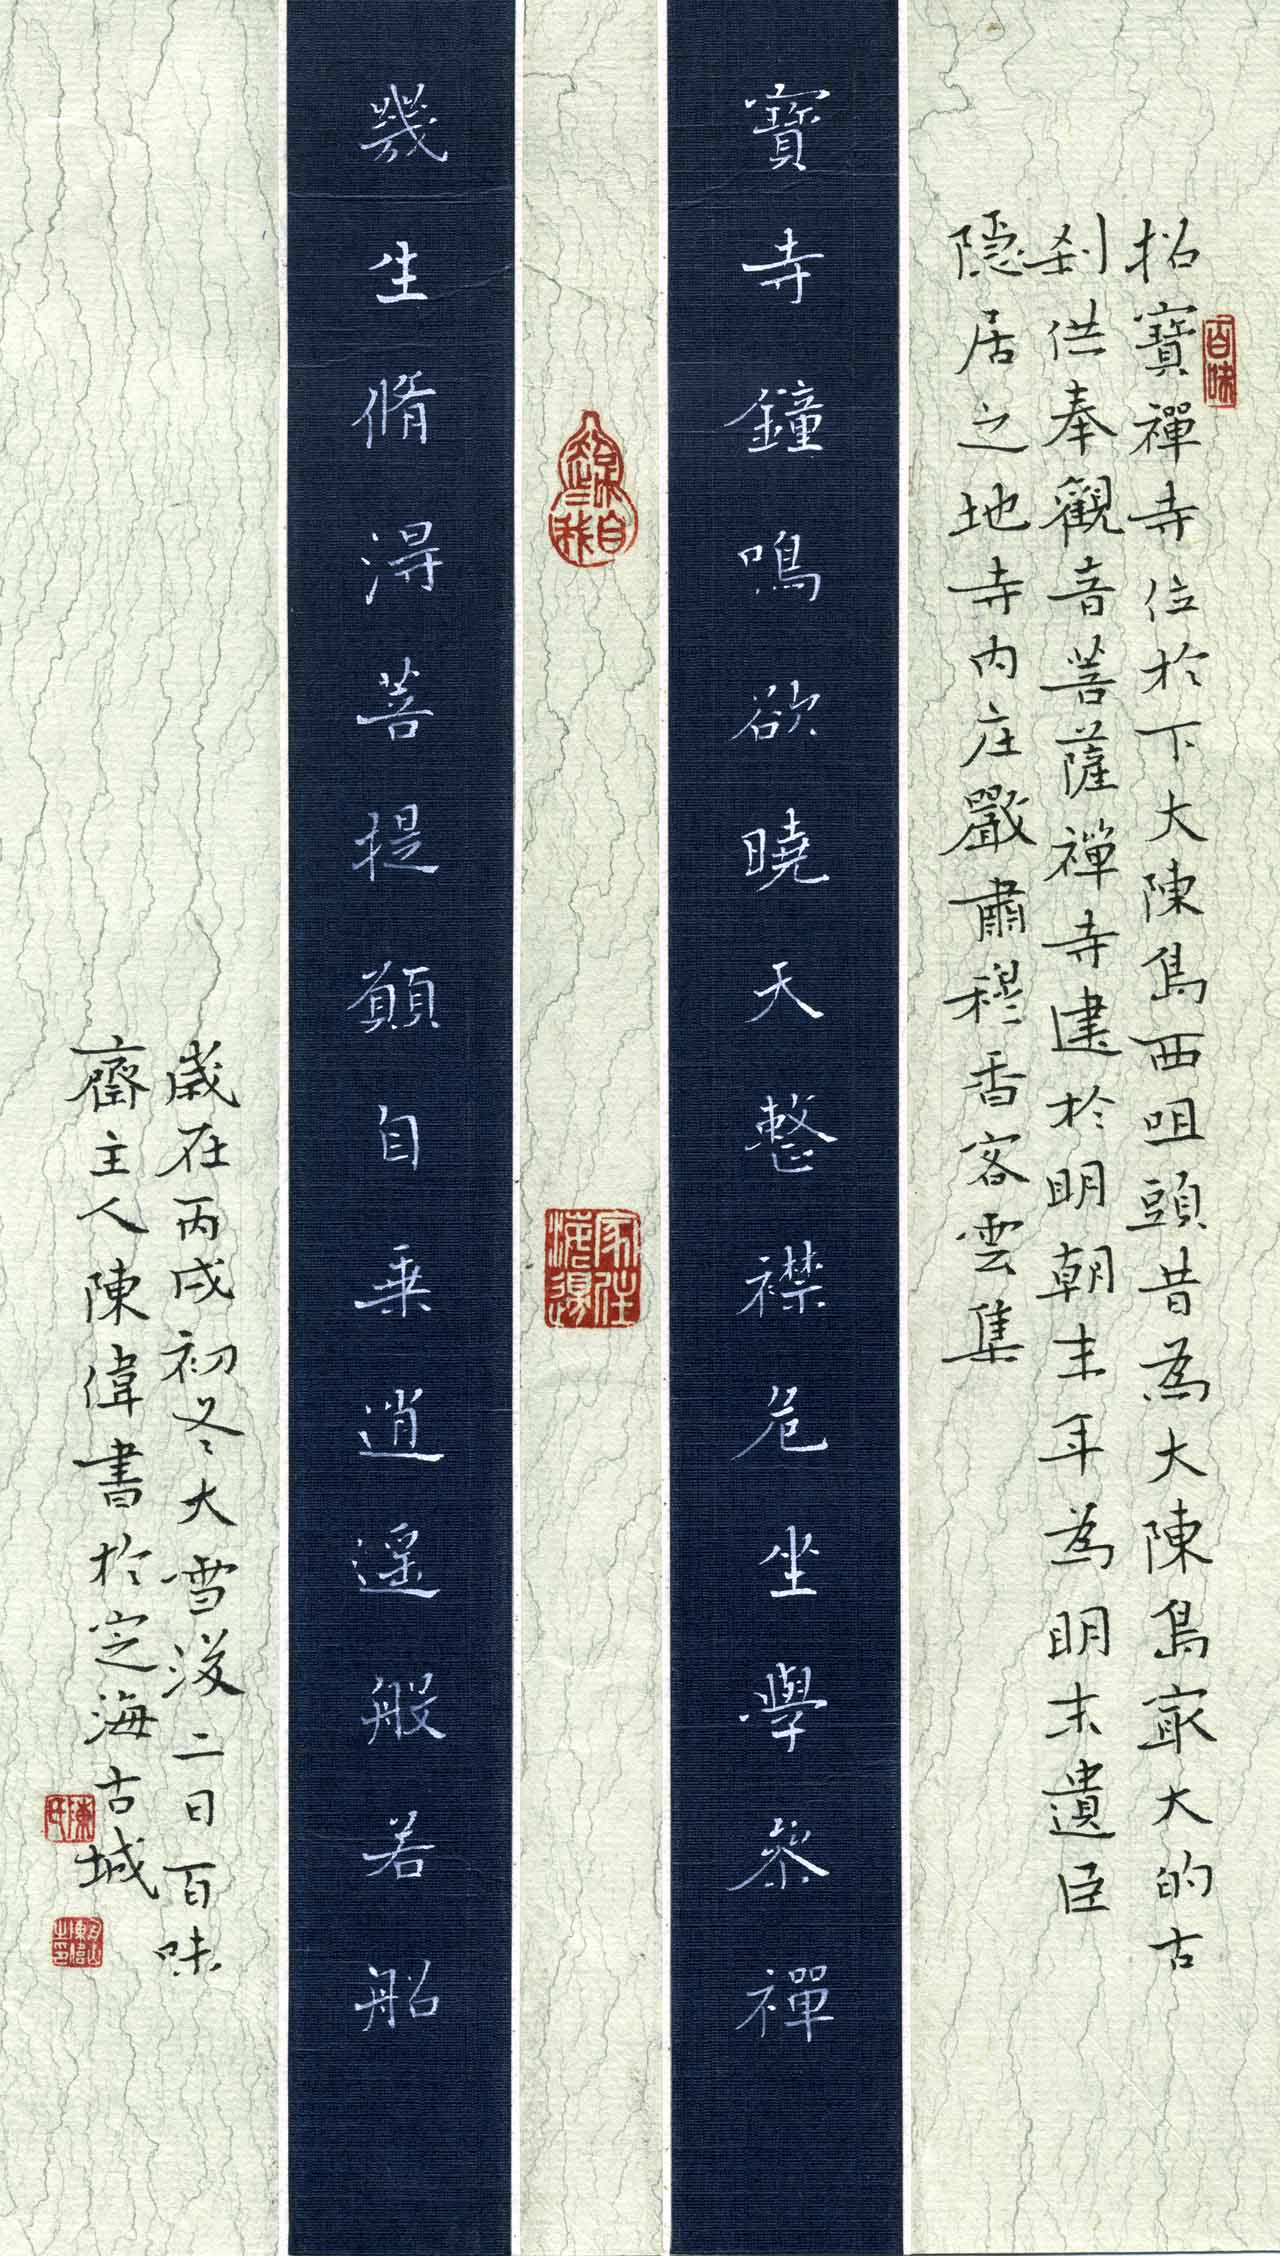 招寶禪寺位於下大陳島西咀頭昔為大陳島最大的古
刹供奉觀音菩薩禪寺建於明朝末年為明末遺臣
隐居之地寺内庄嚴肅穆香客雲集
百味
寶寺鐘鳴欲曉天整襟危坐學叅禪
家住海邊
幾生脩淂菩提願自乗逍遥般若船
歲在丙戌初冬大雪後二日百味
齋主人陳偉書於定海古城
陳氏